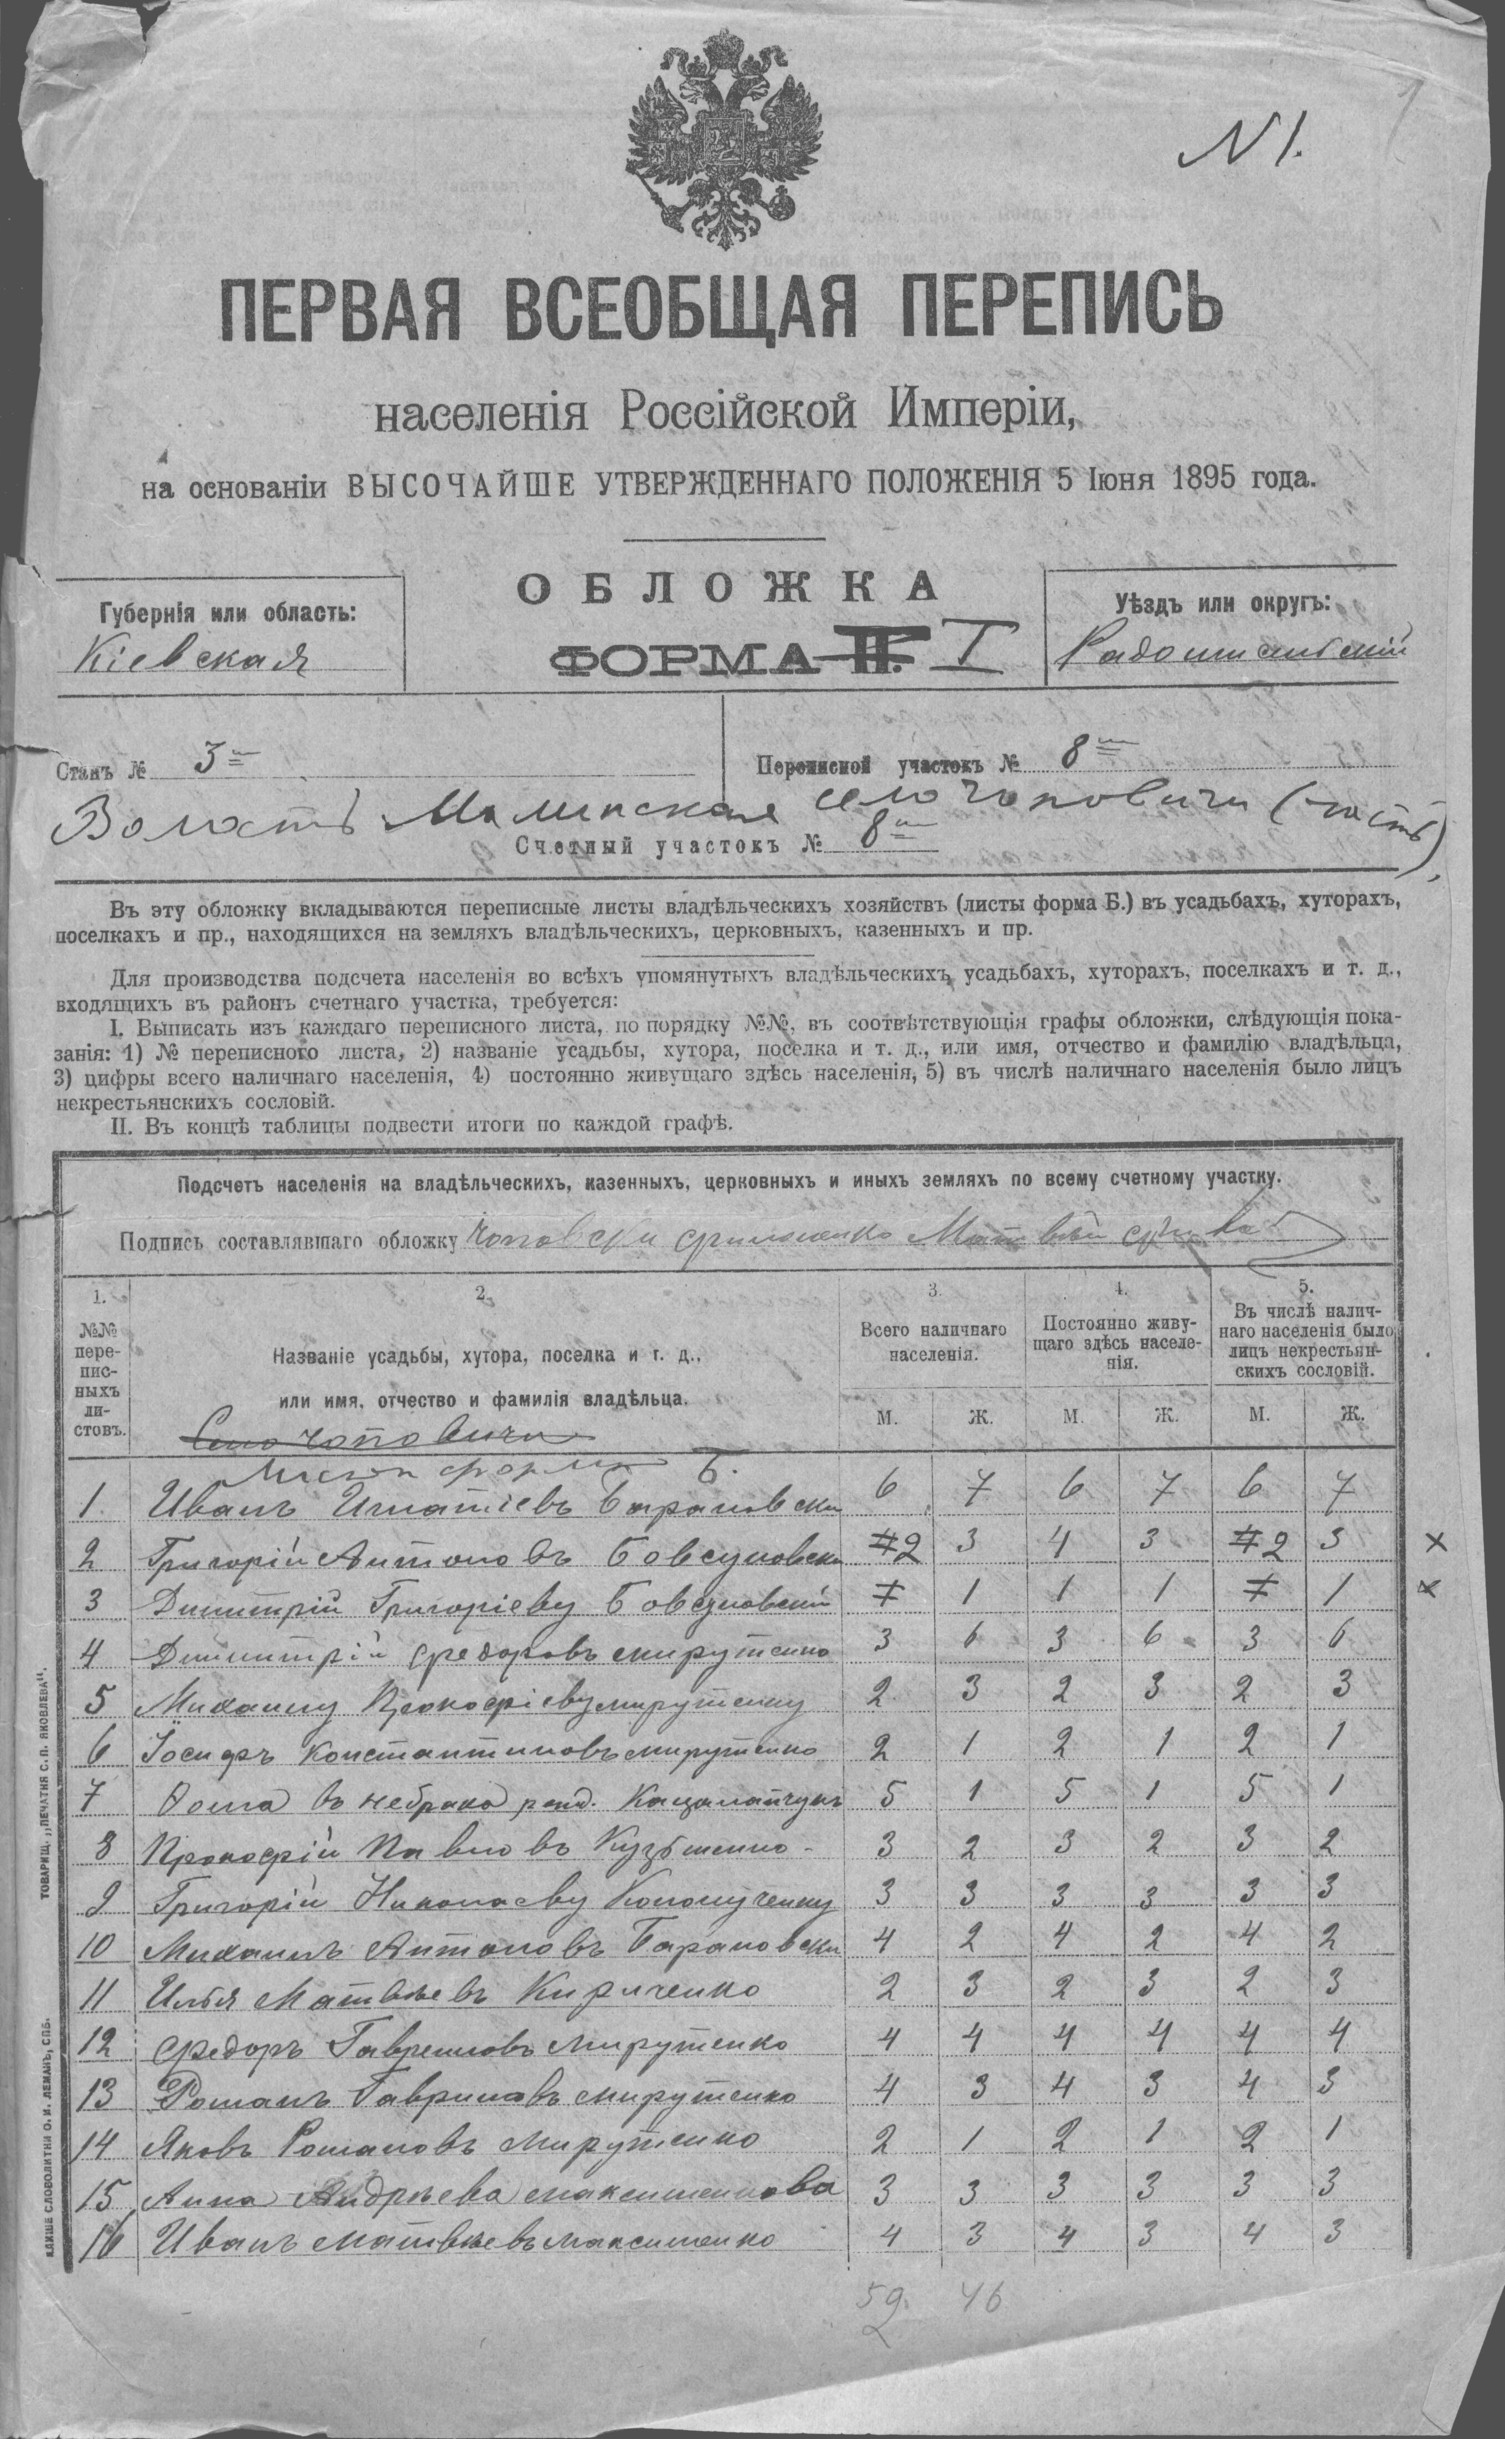 N 1.
ПЕРВАЯ ВСЕОБЩАЯ ПЕРЕПИСЬ
населенія Россійской Имперіи,
на основаніи ВЫСОЧАЙШЕ УТВЕРЖДЕННАГО ПОЛОЖЕНІЯ 5 Іюня 1895 года.
ОБЛОЖКА
Губернія или область:
Уѣздъ или округъ:
Кіевская
ФОРМА II. I
Радомысльскій
Станъ № 3й
Переписной участокъ № 8й
Волость Малинская село Чоповичи (часть),
Счетный участокъ № 8й
Въ эту обложку вкладываются переписные листы владѣльческихъ хозяйствъ (листы форма Б.) въ усадьбахъ, хуторахъ,
поселкахъ и пр., находящихся на земляхъ владѣльческихъ, церковныхъ, казенныхъ и пр.
Для производства подсчета населенія во всѣхъ упомянутыхъ владѣльческихъ усадьбахъ, хуторахъ, поселкахъ и т. д.,
входящихъ въ районъ счетнаго участка, требуется:
I. Выписать изъ каждаго переписного листа, по порядку №№, въ соотвѣтствующія графы обложки, слѣдующія пока-
занія: 1) № переписного листа, 2) названіе усадьбы, хутора, поселка и т. д., или имя, отчество и фамилію владѣльца,
3) цифры всего наличнаго населенія, 4) постоянно живущаго здѣсь населенія, 5) въ числѣ наличнаго населенія было лицъ
некрестьянскихъ сословій.
II. Въ концѣ таблицы подвести итоги по каждой графѣ.
Подсчетъ населенія на владѣльческихъ, казенныхъ, церковныхъ и иныхъ земляхъ по всему счетному участку.
Подпись составлявшаго обложку
1. 2. 3. 4. 5.
№№ пере-писныхъ ли-стовъ.
Названіе усадьбы, хутора, поселка и т. д.,
или имя, отчество и фамилія владѣльца.
Всего наличнаго населенія.
Постоянно живу-щаго здѣсь населе-нія.
Въ числѣ налич-наго населенія было лицъ некрестьян-скихъ сословій.
М. Ж. М. Ж. М. Ж.
Село Чоповичи
Листы формы Б.
1 Иванъ Игнатіевъ Барановски 6 7 6 7 6 7
2 Григорій Антоновъ Бовсуновски 2 3 4 3 2 3 ×
3 Димитрій Григоріеву Бовсуновскій 1 1 1 1 ×
4 Димитрій Федоровъ Мирутенко 3 6 3 6 3 6
5 Михаилу Прокофіеву Мирутенку 2 3 2 3 2 3
6 Іосифъ Константиновъ Мирутенко 2 1 2 1 2 1
7 5 1 5 1 5 1
8 Прокофій Павловъ Кузьменко 3 2 3 2 3 2
9 Григорій Николаеву 3 3 3 3 3 3
10 Михаилъ Антоновъ Барановски 4 2 4 2 4 2
11 Илья Матвѣевъ Кириченко 2 3 2 3 2 3
12 Федоръ Гавреиловъ Мирутенко 4 4 4 4 4 4
13 Романъ Гавриловъ Мирутенко 4 3 4 3 4 3
14 Яковъ Романовъ Мирутенко 2 1 2 1 2 1
15 Анна Андрѣева Максименкова 3 3 3 3 3 3
16 Иванъ Матвѣевъ Максименко 4 3 4 3 4 3
52 46
ТОВАРИЩ. „ПЕЧАТНЯ С.П. ЯКОВЛЕВА“.
КЛИШЕ СЛОВОЛИТНИ О. И. ЛЕМАНЪ, СПБ.